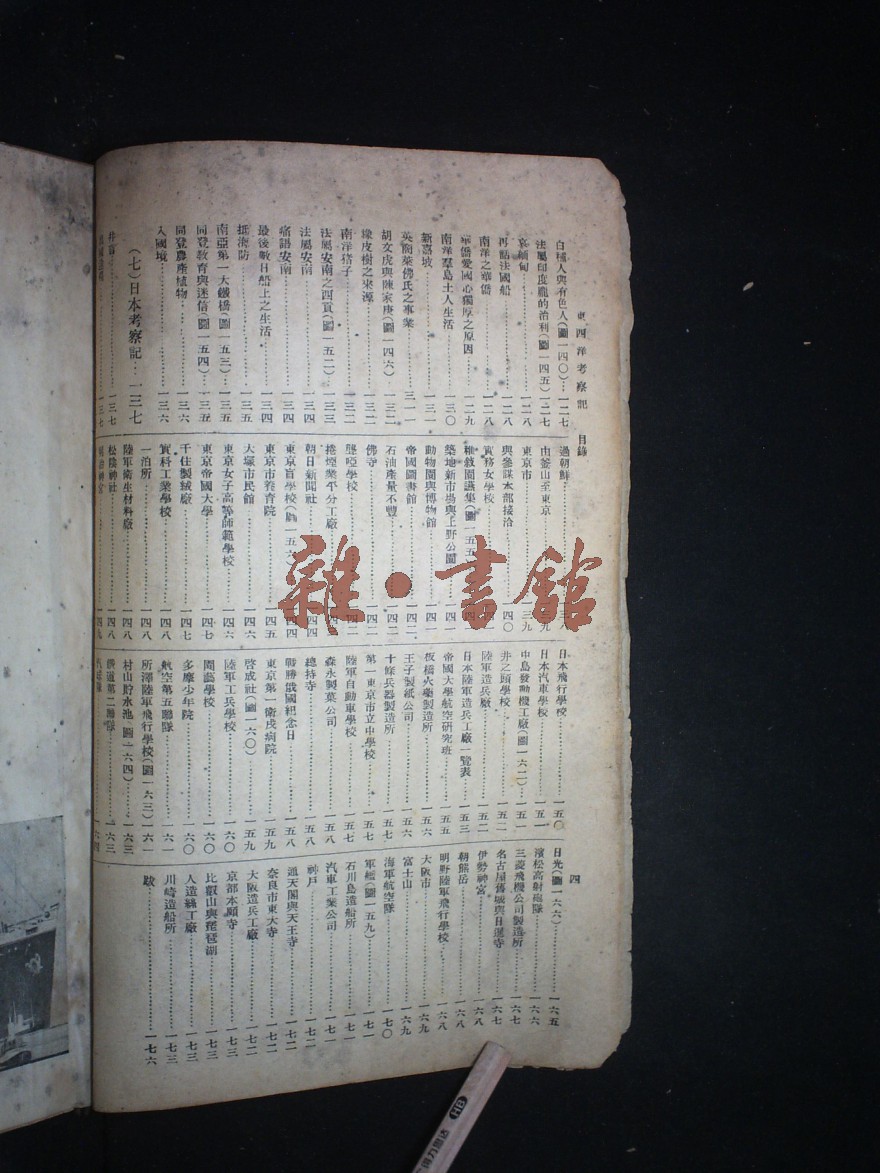 東西洋考察記 目錄
四
白種人與有色人(圖一四〇)…一二七
法屬印度龍的治利(圖一四五)…一二七
哀緬甸…一二八
再點法國船…一二八
南洋之華僑…一二八
華僑愛國心獨厚之原因…一二九
南洋羣島土人生活…一三〇
新嘉坡…一三一
英蘭萊佛氏之事業…一三一
胡文虎與陳家庚(圖一四六)…一三二
橡皮樹之來源…一三二
南洋搭子…一三二
法屬安南之西貢(圖一五二)…一三三
法屬安南…一三四
痛語安南…一三四
最後數日船上之生活…一三四
抵海防…一三五
南亞第一大鐵橋(圖一五三)…一三五
同登教育與迷信(圖一五四)…一三五
同登農產植物…一三六
入國境…一三六
(七)日本考察記…一三七
弁言…一三七
一三七
過朝鮮…一三八
由釜山至東京…一三九
東京市…一三九
與參謀本部接洽…一四〇
實務女學校
椎敘園議集(圖一五五)
築地新市場與上野公園
動物園與博物館…一四一
帝國圖書館…一四二
石油產量不豐…一四二
佛寺…一四二
聾啞學校
捲煙業平分工廠
朝日新聞社…一四四
東京盲學校(圖一五六)…一四四
東京市養育院…一四五
大塚市民館…一四六
東京女子高等師範學校…一四六
東京帝國大學…一四七
千住製絨廠…一四七
實科工業學校…一四八
一泊所…一四八
陸軍衛生材料廠…一四八
松陰神社…一四八
明治神宮…一四九
日本飛行學校…一五〇
日本汽車學校…一五一
中島發動機工廠(圖一六二)…一五一
井之頭學校…一五二
陸軍造兵廠…一五二
日本陸軍造兵工廠一覽表…一五三
帝國大學航空研究班…一五五
板橋火藥製造所…一五六
王子製紙公司…一五六
十條兵器製造所…一五七
第一東京市立中學校…一五七
陸軍自動車學校…一五七
森永製菓公司…一五八
總持寺…一五八
戰勝俄國紀念日…一五八
東京第一衛戍病院…一五九
啓成社(圖一六〇)…一五九
陸軍工兵學校…一六〇
園藝學校…一六〇
多摩少年院…一六〇
航空第五聯隊…一六一
所澤陸軍飛行學校(圖一六三)…一六一
村山貯水池(圖一六四)…一六三
鐵道第二聯隊…一六三
一六四
日光(圖一六六)…一六五
濱松高射砲隊…一六六
三菱飛機公司製造所…一六七
名古屋舊城與日暹寺…一六七
伊勢神宮…一六八
朝熊岳…一六八
明野陸軍飛行學校…一六八
大阪市…一六九
富士山…一六九
海軍航空隊…一七〇
軍艦(圖一五九)…一七一
石川島造船所…一七一
汽車工業公司…一七一
神戶…一七二
通天閣與天王寺…一七二
奈良市東大寺…一七二
大阪造兵工廠…一七二
京都本願寺…一七三
比叡山與琵琶湖…一七三
人造絲工廠…一七三
川崎造船所…一七三
跋…一七六
雜·書館
HB
得力思达